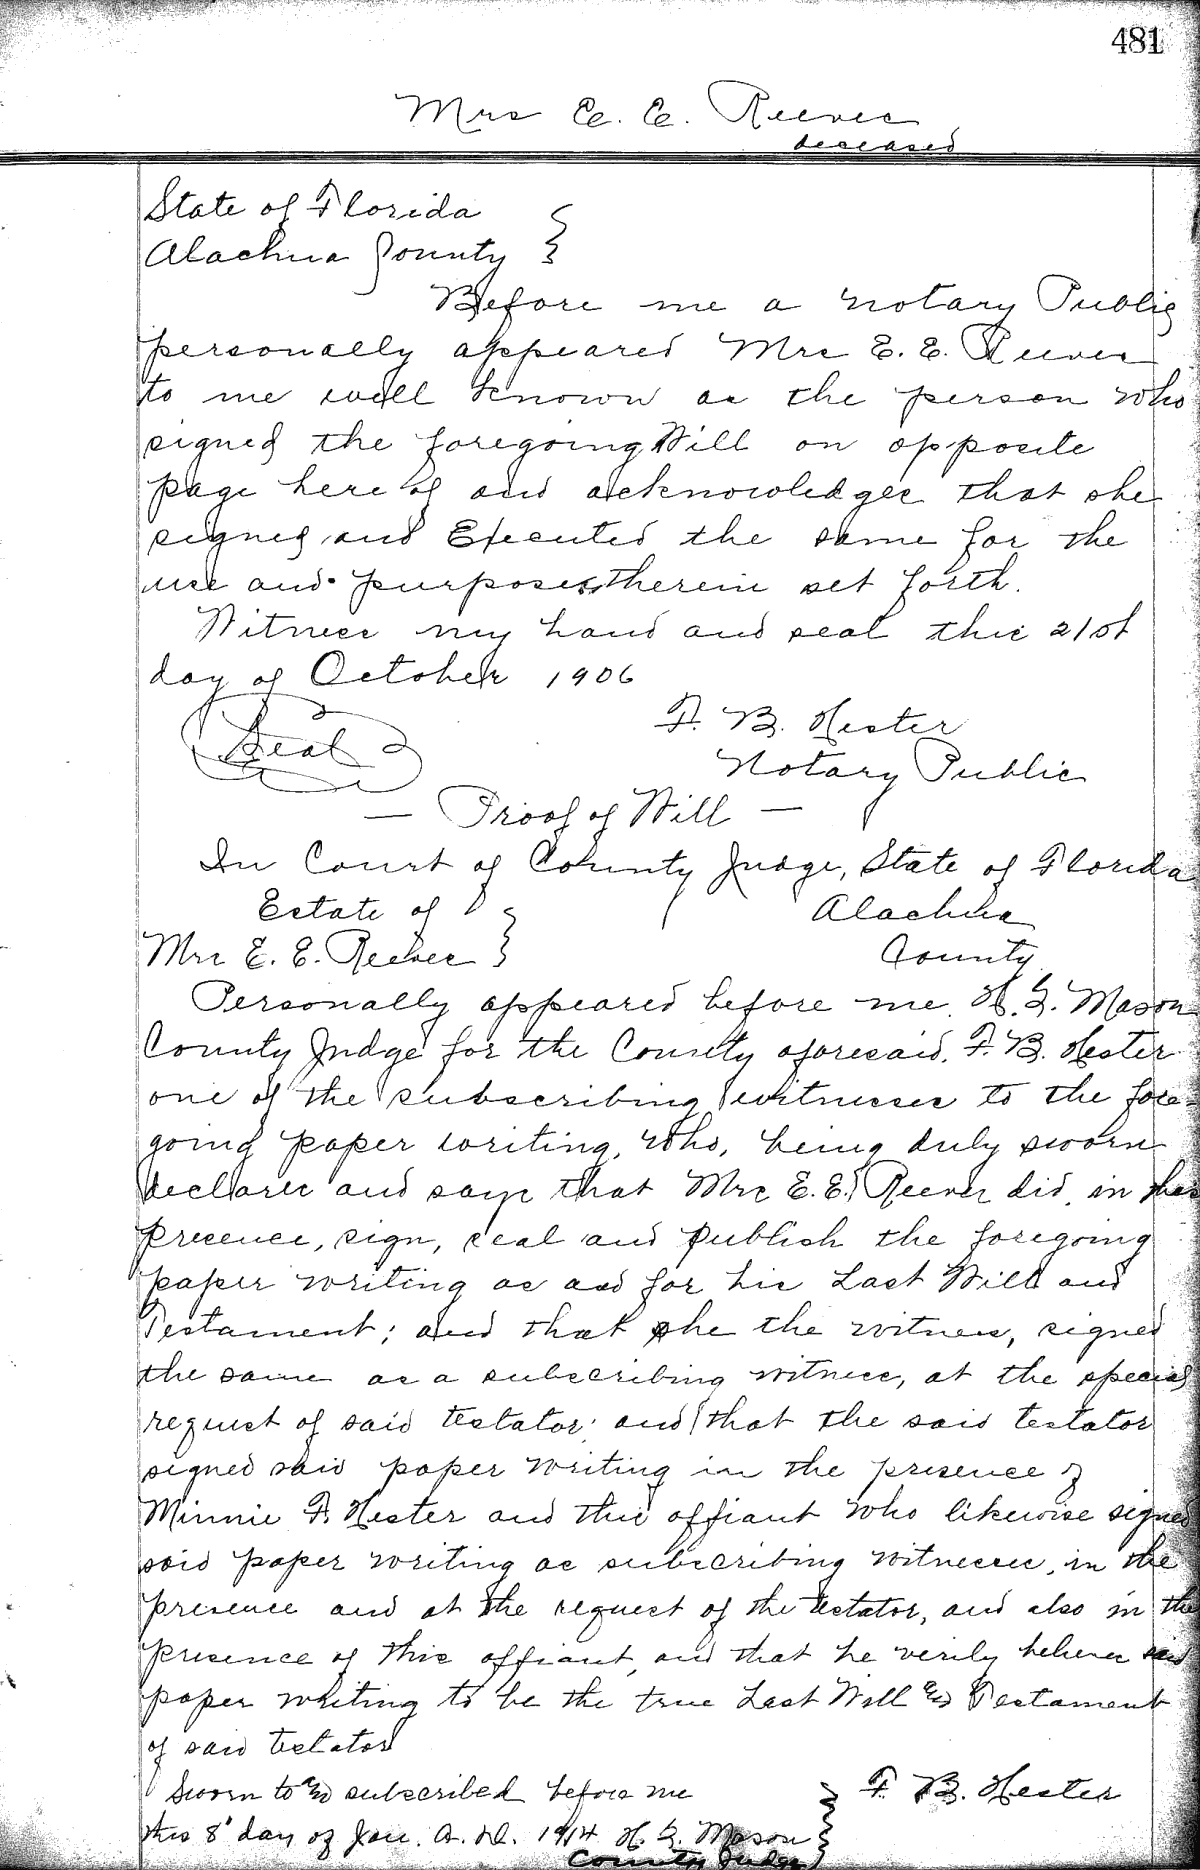 481
Mrs E. E. Reeves
deceased
State of Florida
Alachua County
Before me a Notary Public
personally appeared Mrs E. E. Reeves
to me well known as the person who
signed the foregoing Will on opposite
page here of and acknowledges that she
signed and Executed the same for the
use and purposes therein set forth.
Witness my hand and seal this 21st
day of October 1906
Seal
F. B. Hester
Notary Public
— Proof of Will —
In Court of County Judge, State of Florida
Estate of Alachua
Mrs E. E. Reeves County
Personally appeared before me, H. G. Mason
County Judge for the County aforesaid, F. B. Hester
one of the subscribing witnesses to the fore-
going paper writing, who, being duly sworn
declares and says that Mrs E. E. Reeves did, in
presence, sign, seal and publish the foregoing
paper writing as and for his Last Will and
Testament; and that she the witness, signed
the same as a subscribing witness, at the special
request of said testator; and that the said testator
signed said paper writing in the presence of
Minnie F. Hester and this affiant who likewise signed
said paper writing as subscribing witnesses, in the
presence and at the request of the testator, and also in the
presence of this affiant, and that he verily believes said
paper writing to be the true Last Will and Testament
of said testator
Sworn to and subscribed before me F. B. Hester
this 8" day of Jan. A. D. 1914 H. G. Mason
County Judge